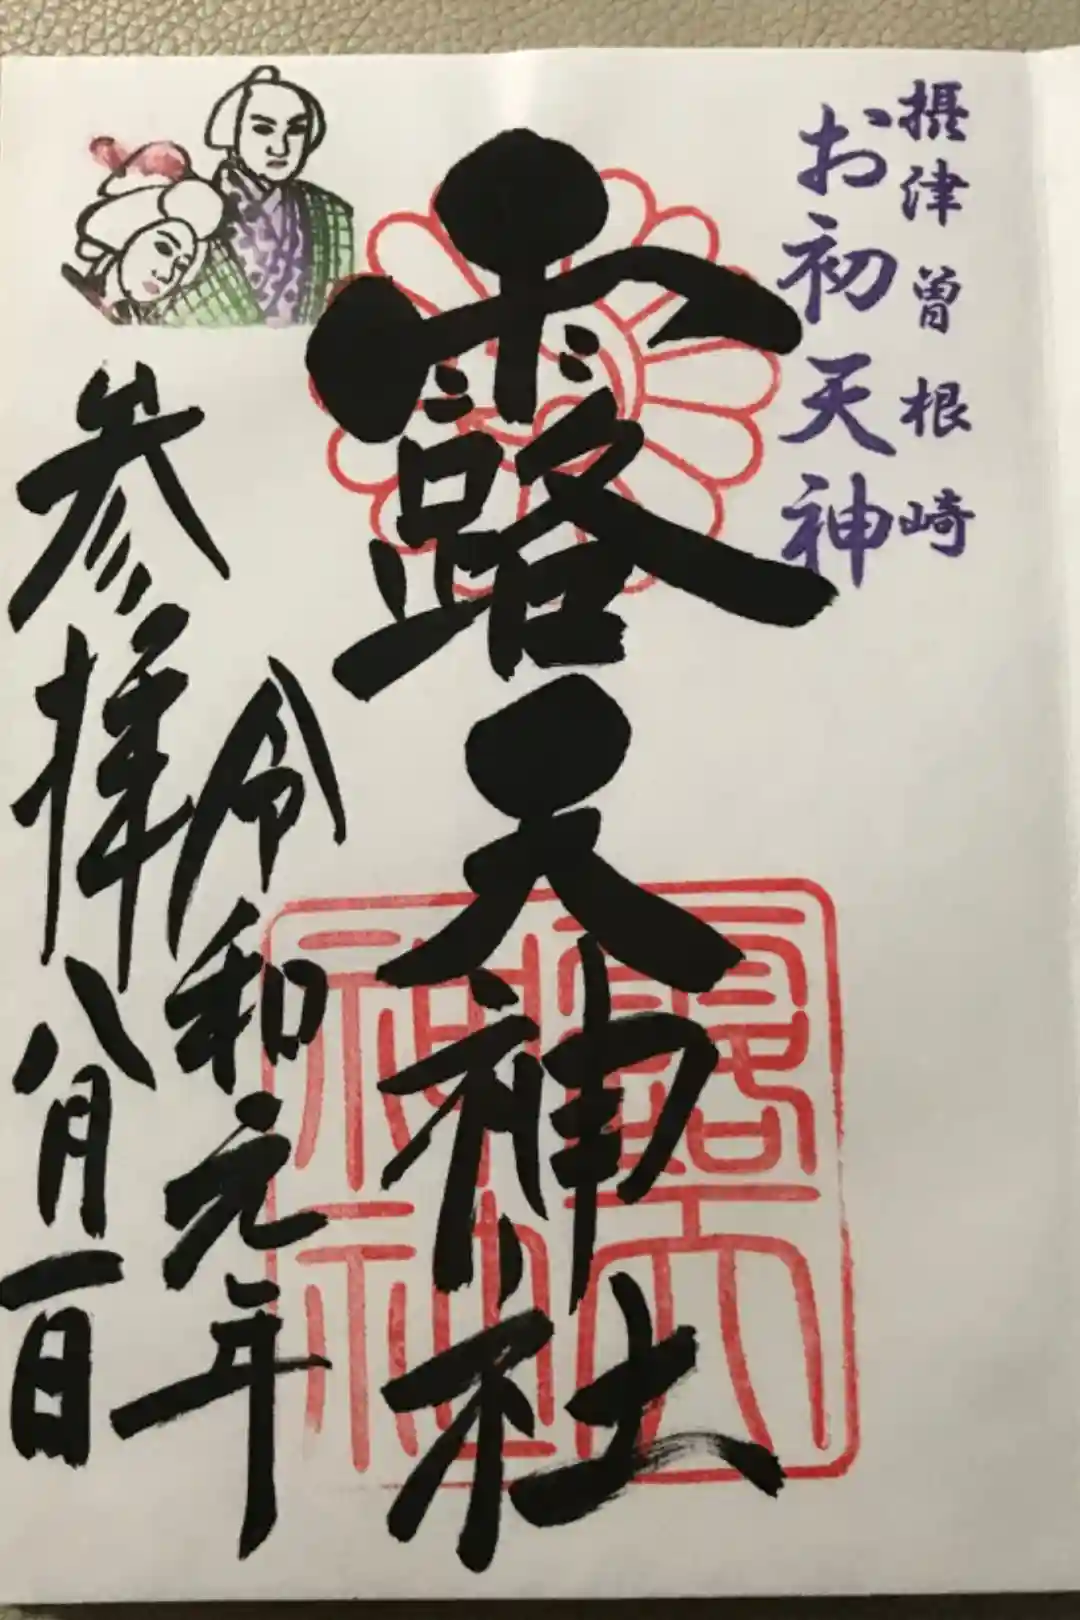 摂津曽根崎
お初天神
露天神社
令和元年
八月一日
参拝
露天
神社